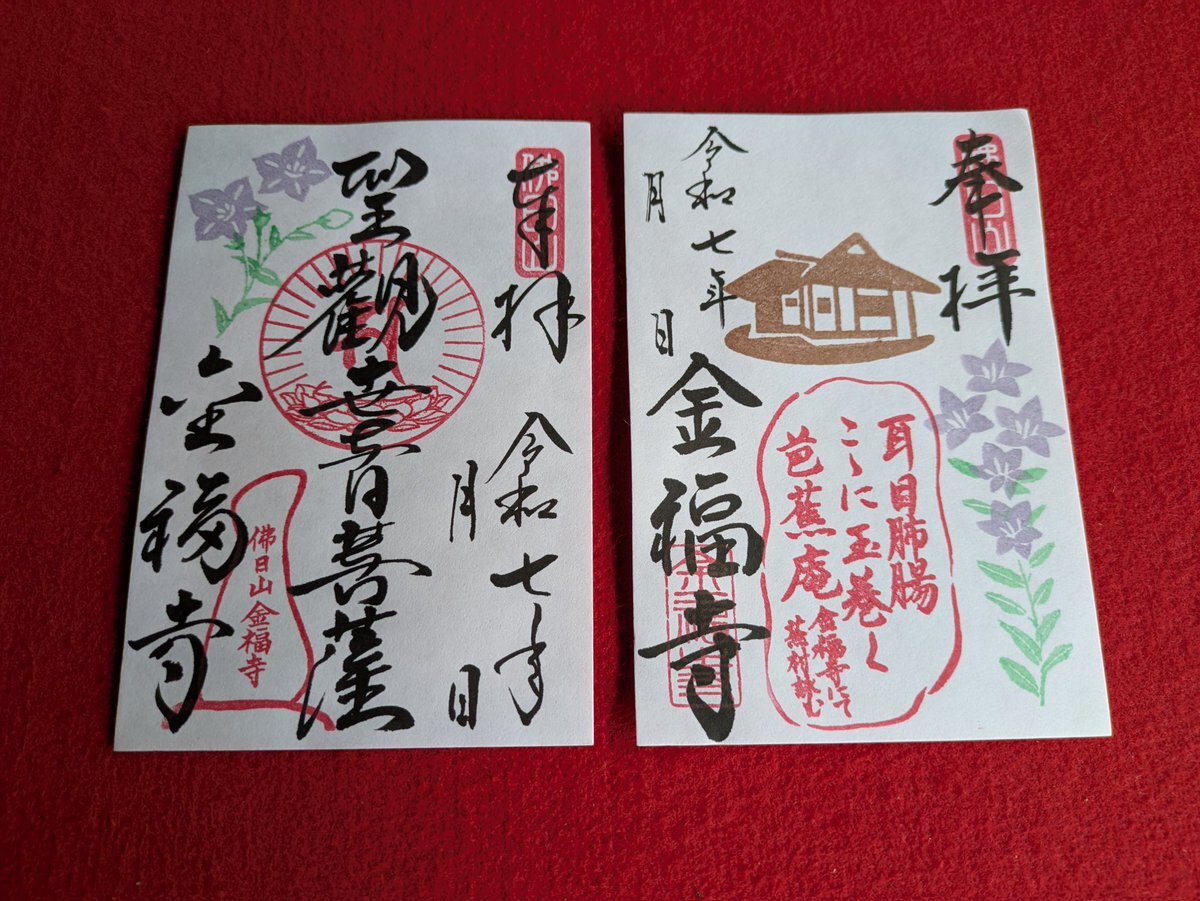 奉拝
令和七年
月 日
聖觀世音菩薩
金福寺
佛日山金福寺
奉拝
耳目肺腸
こゝに玉巻く
芭蕉庵
金福寺にて
蕪村詠む
令和七年
月 日
金福寺